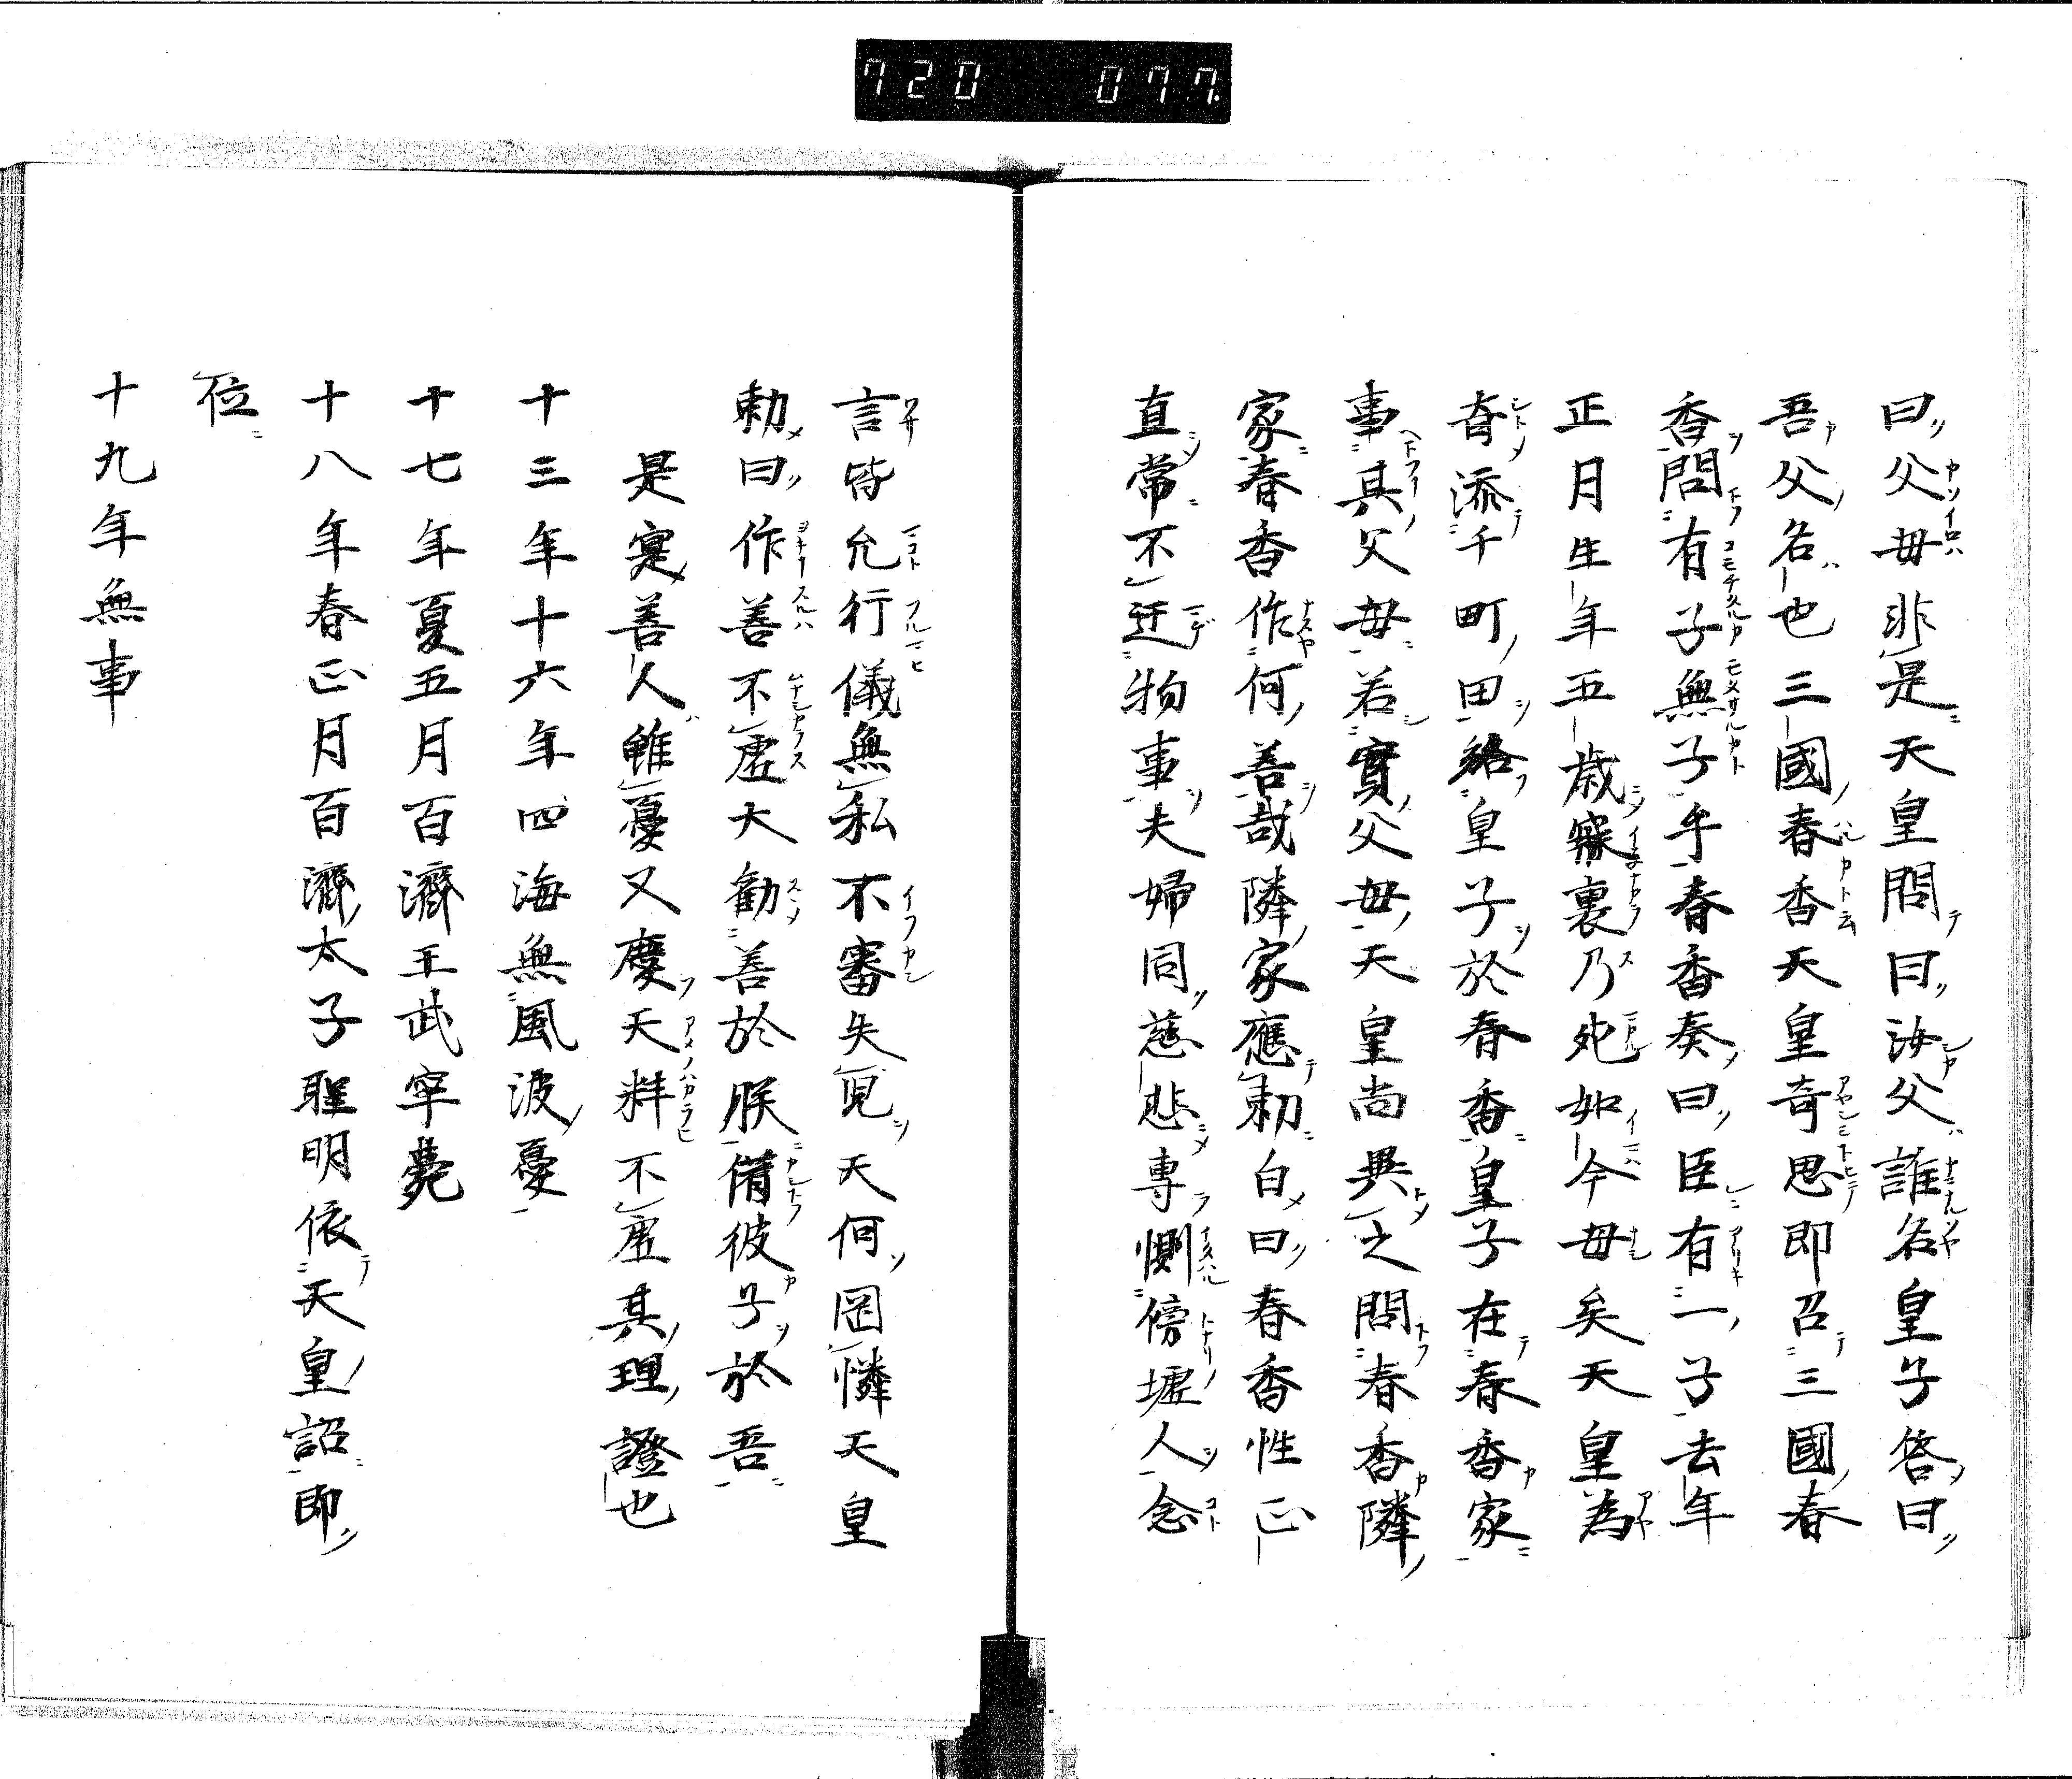 720 077
曰父母非是天皇問曰汝父誰名皇子答曰
吾父名也三國春香天皇奇思即召三國春
香問有子無子乎春香奏曰臣有一子去年
正月生年五歳寐裏乃死如今母矣天皇為
奇添千町田給皇子於春香皇子在春香家
事其父母若實父母天皇尚異之問春香隣
家春香作何善哉隣家應勅白曰春香性正
直常不迂物事夫婦同慈悲專惻傍壚人念
言皆允行儀無私不審失皃天何罔憐天皇
勅曰作善不虚大勧善於朕備彼子於吾
是寔善人雖憂又慶天料不虚其理證也
十三年十六年四海無風波憂
十七年夏五月百濟王武寧薨
十八年春正月百濟太子聖明依天皇詔即
位
十九年無事